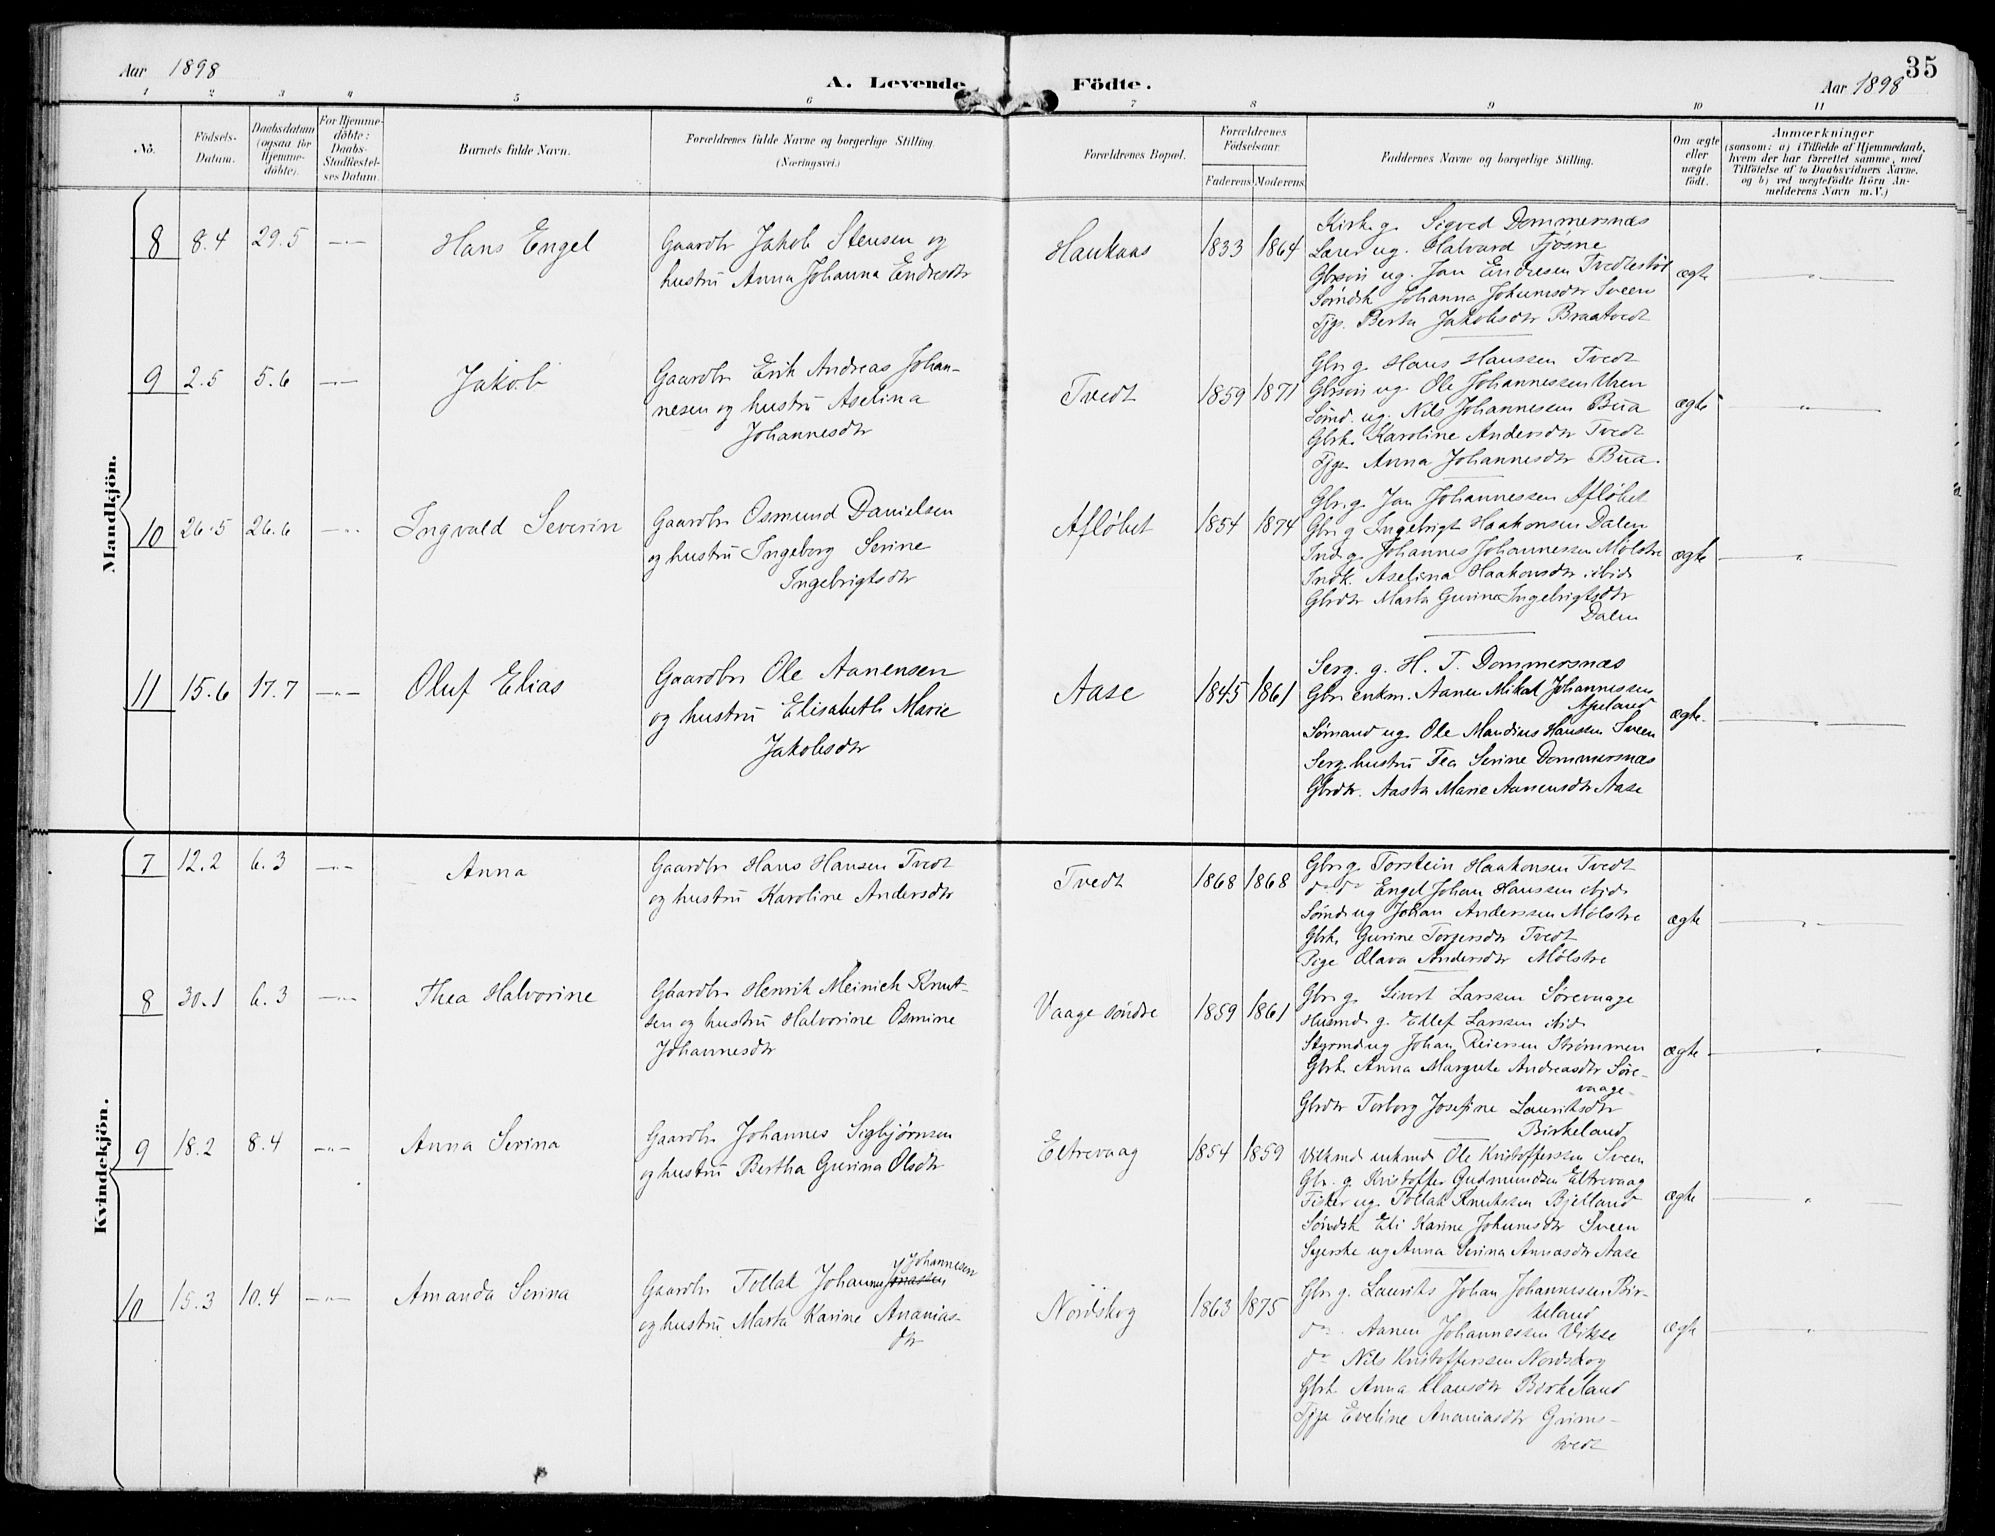 Aar 1898
A. Levende Födte.
35
Aar 1898
1 2 3 4 5 6 7 8 9 10 11
No.
Födsels-Datum.
Daabsdatum (ogsaa for Hjemme-döbte).
For Hjemme-döbte: Daabs-Stadfæstel-ses Datum.
Barnets fulde Navn.
Forældrenes fulde Navne og borgerlige Stilling. (Næringsvei.)
Forældrenes Bopæl.
Forældrenes Födselsaar.
Faderens Moderens
Faddernes Navne og borgerlige Stilling.
Om ægte eller uægte födt.
Anmærkninger
(saasom: a) i Tilfælde af Hjemmedaab,
hvem der har forrettet samme, med
Tilföielse af to Daabsvidners Navne.
og b) ved uægtefödte Börn An-
melderens Navn m. V.)
Mandkjön.
8 8.4 29.5 -"- Hans Engel
Gaardbr Jakob Stensen og
hustru Anna Johanna Endresdtr
Haukaas 1833 1864
Kirk. g. Sigved Dommersnæs
Lærer ug. Halvard Tjösne
Gbrsön ug. Jan Endresen Tvedtestöl
Sömdsk Johanna Johannesdtr Sveen
Pige Berta Jakobsdtr Braatvedt
ægte -"-
9 2.5 5.6 -"- Jakob
Gaardbr Erik Andreas Johan-
nesen og hustru Aselina
Johannesdtr
Tvedt 1859 1871
Gbr g. Hans Hanssen Tvedt
Gbrsön ug. Ole Johannessen Uren
Sömd. ug. Nils Johannesen Bua
Gbrk. Karoline Andersdtr Tvedt
Pige Anna Johannesdtr Bua.
ægte -"-
10 26.5 26.6 -"- Ingvald Severin
Gaardbr Osmund Danielsen
og hustru Ingeborg Serine
Ingebrigtsdtr
Aflöbet 1854 1874
Gbr g. Jan Johannessen Aflöbet
Gbr g Ingebrigt Haakonsen Dalen
Ind. g. Johannes Johannessen Mölstre
Indk. Aselina Haakonsdtr ibid.
Gbrdtr Marta Gurine Ingebrigtsdtr
Dalen
ægte -"-
11 15.6 17.7 -"- Oluf Elias
Gaardbr Ole Aanensen
og hustru Elisabeth Marie
Jakobsdtr
Aase 1845 1861
Serg. g. H. T. Dommersnæs
Gbr enkm. Aanen Mikal Johannessen
Apeland
Sömand ug. Ole Mandius Hansen Sveen
Serg. hustru Tea Serine Dommersnæs
Gbrdtr. Aasta Marie Aanensdtr Aase
ægte. -"-
Kvindekjön.
7 12.2 6.3 -"- Anna
Gaardbr Hans Hansen Tvedt
og hustru Karoline Andersdtr
Tvedt 1868 1868
Gbr g. Torstein Haakonsen Tvedt
do do Engel Johan Hanssen ibid.
Sömd ug Johan Anderssen Mölstre
Gbrk. Gurine Torgersdtr Tvedt
Pige Olava Andersdtr Mölstre
ægte -"-
8 30.1 6.3 -"- Thea Halvorine
Gaardbr Henrik Meinich Knut-
sen og hustru Halvorine Osmine
Johannesdtr
Vaage söndre 1859 1861
Gbr g. Sivert Larssen Sörevaage
Husmd g. Ellef Larssen ibid.
Styrmd ug Johan Reiersen Strömmen
Gbrk. Anna Margrete Andreasdtr Söre-
vaage
Gbrdtr Torborg Josefine Lauritsdtr
Birkeland
ægte -"-
9 18.2 8.4 -"- Anna Serina
Gaardbr Johannes Sigbjørnsen
og hustru Bertha Gurina Olsdtr
Eltrevaag 1854 1859
enkmd Ole Kristofferssen Sveen
Gbr. g Kristoffer Gudmundsen Eltrevaag
Fisker ug. Tollak Knutssen Bjelland
Sömdsk Eli Karine Johannesdtr Sveen
Syerske ug Anna Serina Annasdtr Aase
ægte -"-
10 15.3 10.4 -"- Amanda Serina
Gaardbr Tollak Johannes Johannesen
og hustru Marta Karine Ananias-
dtr
Nordskog 1863 1875
Gbr g. Laurits Johan Johannesen Bir-
keland
do. Aanen Johannessen Vikse
do Nils Kristofferssen Nordskog
Gbrk Anna Klausdtr Birkeland
Pige Eveline Ananiasdtr Grims-
tvedt
ægte -"-